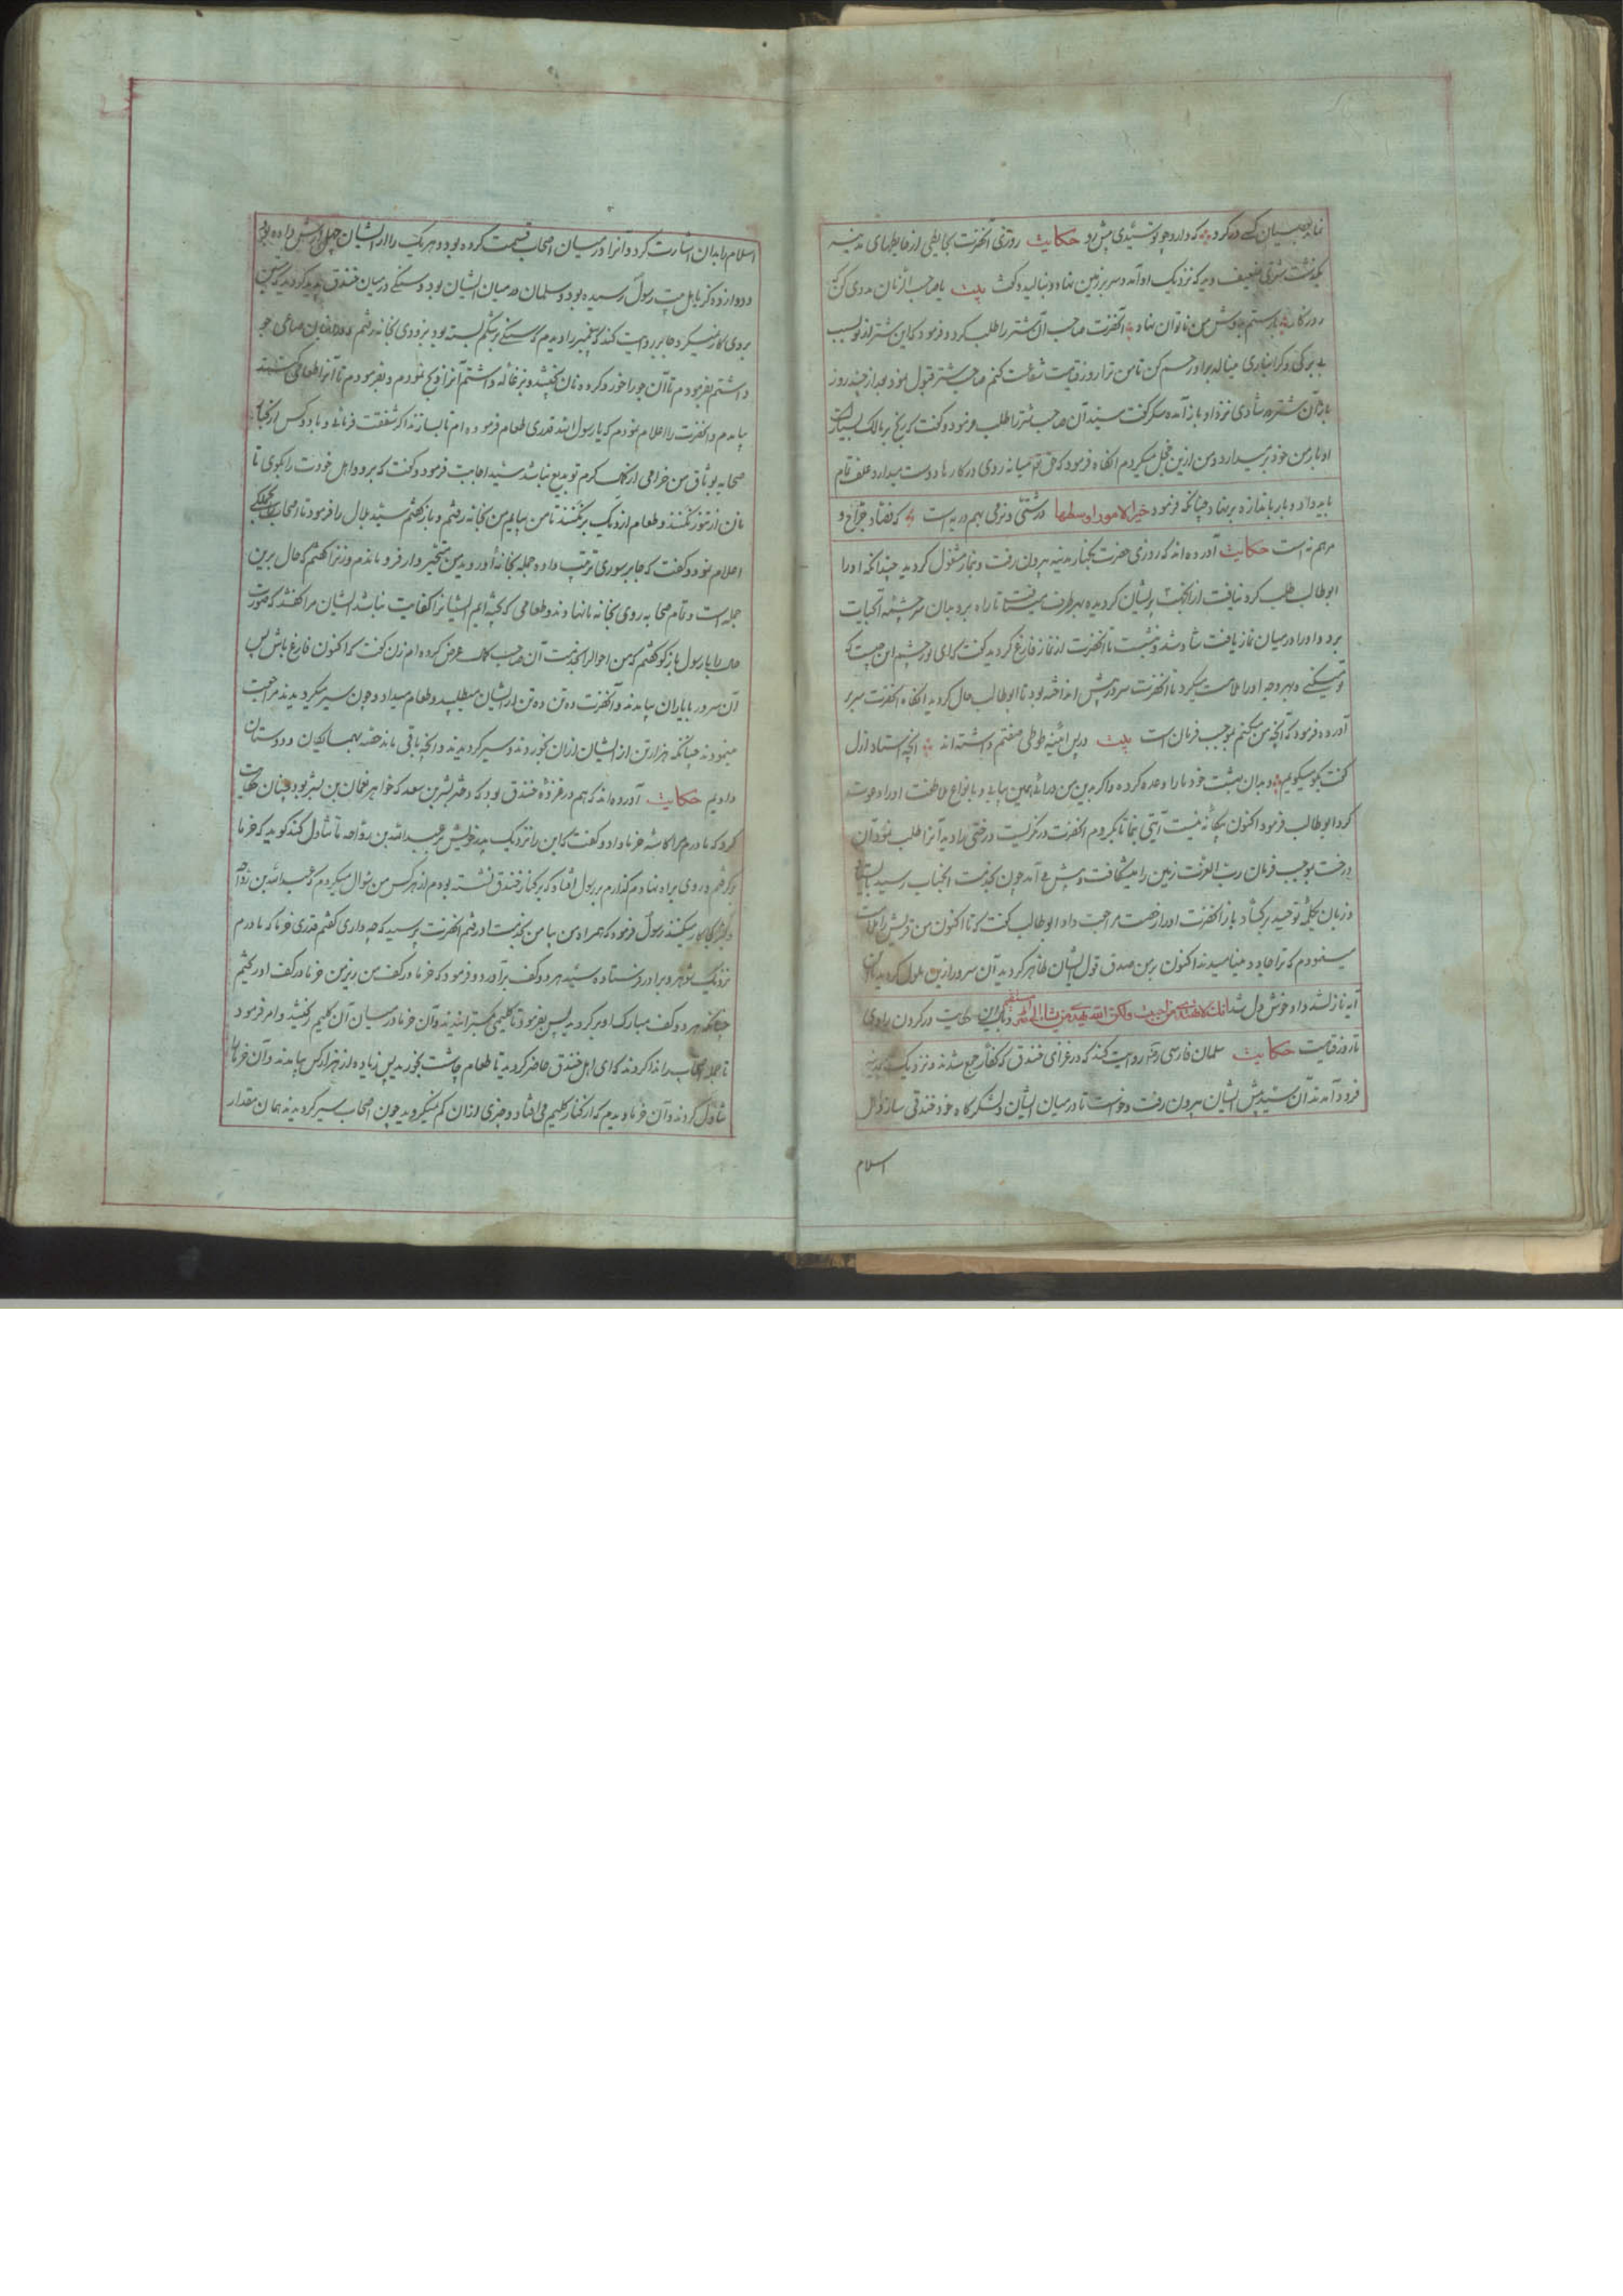 نماید بعصیان کسی در گرد که دارد چو تو سیدی پیش رو حکایت روزی آنحضرت بحایطی از حایطهای مدینه
بگذشت شتری ضعیف دید که نزدیک او آمد و سر بر زمین نهاد و بنالید و گفت بیت یا صاحب الزمان مددی کن
روزگار بار ستم بدوش من ناتوان نهاد آنحضرت صاحب آن شتر را طلب کرد و فرمود که این شتر از تو بسبب
بی برگی و گرانباری مینالد برو رحم کن تا من ترا روز قیامت شفاعت کنم صاحب شتر قبول نمود بعد از چند روز
باز آن شتر به شادی نزد او باز آمده شکر گفت سید آن صاحب شتر را طلب فرمود و گفت که رنج بر مالک بسیار است
او بار من خود بر میدارد و من ازین خجل میگردم آنگاه فرمود که حق تعالی میانه روی در کارها دوست میدارد علف تمام
باید داد و بار باندازه بر نهاد چنانکه فرمود خیر الامور اوسطها درشتی و نرمی بهم در به است که فصاد جراح و
مرهم نه است حکایت آورده اند که روزی حضرت بکنار مدینه بیرون رفت و بنماز مشغول گردید چندانکه او را
ابوطالب طلب کرد نیافت از آنجهت پریشان گردیده بهر طرف میرفت تا راه بر بدان سرچشمه آبحیات
برد و او را در میان نماز یافت شاد شد و بنشست تا آنحضرت از نماز فارغ گردید گفت که ای نور چشم این چیست که
تو میکنی و بهر وجه او را ملامت میکرد تا آنحضرت سر در پیش انداخته بود تا ابوطالب ملول گردید آنگاه آنحضرت سر بر
آورده فرمود که آنچه من میکنم بموجب فرمان است بیت در پس آینه طوطی صفتم داشته اند آنچه استاد ازل
گفت بگو میگویم و بدان بهشت خود ما را وعده کرده و اگر بدین من درآئی همین بیابی و بانواع ملاطفت او را دعوت
کرد ابوطالب فرمود اکنون بیگانه نیست آیتی بنما تا بگروم آنحضرت در نگریست درختی را دید آنرا طلب نمود آن
درخت بموجب فرمان رب العزت زمین را میشکافت و پیش می آمد چون بخدمت آنجناب رسید بایستاد
و زبان بکلمه توحید برگشاد باز آنحضرت او را رخصت مراجعت داد ابوطالب گفت که تا اکنون من قریش را ملامت
مینمودم که ترا جادو مینامیدند اکنون بر من صدق قول ایشان ظاهر گردید آن سرور ازین ملول گردید
آیه نازل شد و او خوش دل شد انک لا تهدی من احببت ولکن الله یهدی من یشاء الی صراط مستقیم و ننگ این حکایت در گردن راوی
تا روز قیامت حکایت سلمان فارسی روایت کند که در غزای خندق که کفار جمع شدند و نزدیک مدینه
فرود آمدند آن سید پیش ایشان بیرون رفت و خواست تا در میان ایشان و لشکر گاه خود خندقی سازد اهل
اسلام
اسلام را بدان اشارت کرد و آنرا در میان اصحاب قسمت کرده بود و هر یک را از ایشان چهل ارش داده بود
و دوازده کز باهل بیت رسول رسیده بود و سلمان در میان ایشان بود و سنگی در میان خندق پدید گردید که تیشه
بر وی کار نمیکرد جابر روایت کند که پیغمبر را دیدم که سنگی بر شکم بسته بود بزودی بخانه رفتم و صاعی جو
داشتم بفرمودم تا آن جو را خورد کرده نان پختند و بزغاله داشتم آنرا ذبح نمودم و بفرمودم تا آنرا طعامی پختند
بیامدم و آنحضرت را اعلام نمودم که یا رسول الله قدری طعام فرموده ام تا بسازند اگر شفقت فرمائی و با دو کس از کبار
صحابه بوثاق من خرامی از کرم تو بدیع نباشد سید اجابت فرمود و گفت که برو و اهل خودت را بگوی تا
نان از تنور نکنند و طعام از دیک برنکنند تا من بیایم من بخانه رفتم و باز گفتم سید بلال را فرمود تا اصحاب را بجملگی
اعلام نمود و گفت که جابر سوری ترتیب داده جمله بخانه او روید من متحیر وار فرو ماندم و زنرا گفتم که حال برین
جمله است و تمام صحابه روی بخانه ما نهادند و طعامی که پخته ایم ایشانرا کفایت نباشد ایشان مرا گفتند که صورت
حال را با رسول باز گو گفتم که من احوال را بخدمت آن صاحب کمال عرض کرده ام زن گفت که اکنون فارغ باش پس
آن سرور با یاران بیامدند و آنحضرت ده تن ده تن از ایشان میطلبید و طعام میداد و چون سیر میگردیدند مراجعت
مینمودند چنانکه هزار تن از ایشان از آن بخوردند و سیر گردیدند و آنچه باقی ماند حصه بهمسایگان و دوستان
دادیم حکایت آورده اند که هم در غزوه خندق بود که دختر بشر بن سعد که خواهر نعمان بن بشیر بود چنان حکایت
کرد که مادرم مرا کاسه خرما داد و گفت که این را نزدیک پدر خویش بر و عبدالله بن رواحه تا تناول کنند گوید که خرما
برگرفتم و روی براه نهادم گذارم بر رسول افتاد که بر کنار خندق نشسته بودم از هر کس من سؤال میکردم که عبدالله بن رواحه
و بشر کجا کار میکنند رسول فرمود که همراه من بیا من بخدمت او رفتم آنحضرت پرسید که چه داری گفتم قدری خرما که مادرم
نزدیک شوهر و برادر فرستاده سید هر دو کف برآورد و فرمود که خرما در کف من ریز من خرما در کف او ریختم
چنانکه هر دو کف مبارک او پر گردید پس بفرمود تا گلیمی گسترانیدند و آن خرما در میان آن گلیم ریختند و امر فرمود
تا جمله اصحاب را ندا کردند که ای اهل خندق حاضر گردید تا طعام چاشت بخورید پس زیاده از هزار کس بیامدند و آن خرما را
تناول کردند و آن خرما دیدم که از کنار گلیم می افتاد و چیزی از آن کم نمیگردید چون اصحاب سیر گردیدند همان مقدار